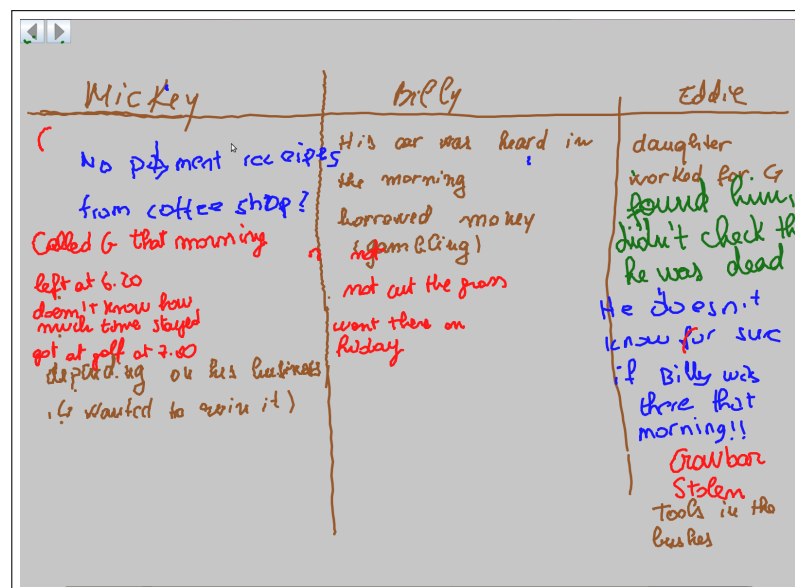 Mickey
No payment receipts
from coffee shop?
Called G that morning
left at 6.20
doesn't know how
much time stayed
got at golf at 7.00
depending on his business
(G wanted to ruin it)
Billy
His car was heard in
the morning
borrowed money
(gambling)
not cut the grass
went there on
friday
Eddie
daughter
worked for G
found him,
didn't check th
he was dead
He doesn't
know for sure
if Billy was
there that
morning!!
Crowbar
Stolen
Tools in the
bushes